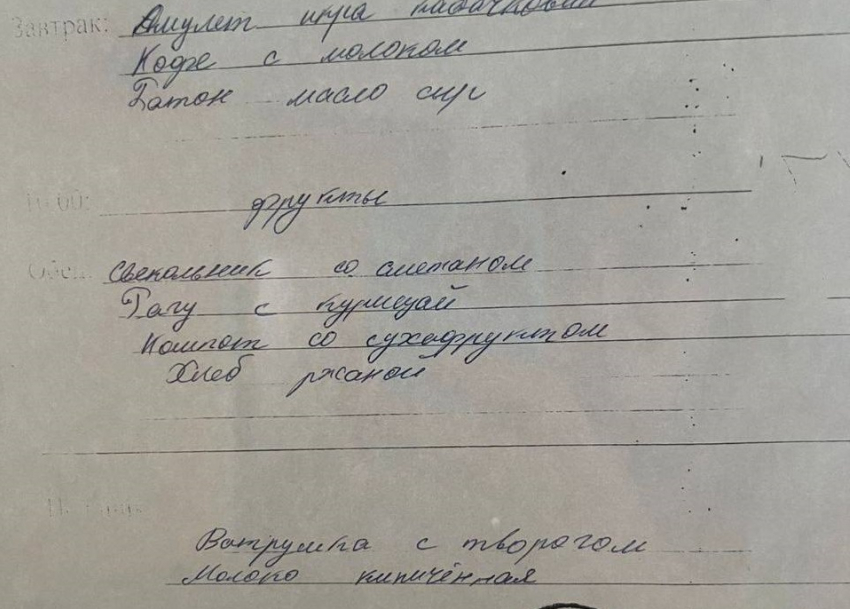 Завтрак: Омулет икра кабачковый
Кофе с молоком
Батон масло сыр
10:00: фрукты
Обед: Свекольник со сметаном
Рагу с курицай
Компот со сухофруктом
Хлеб ржаной
Ватрушка с творогом
Молоко кипичённая